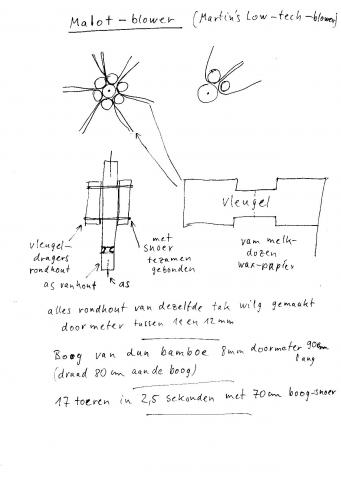 Malot-blower (Martin's Low-tech-blower)
vleugel
vleugel-
dragers
rondhout
as van hout
as
met
snoer
tezamen
gebonden
vam melk-
dozen
wax-papier
alles rondhout van dezelfde tak wilg gemaakt
doormeter tussen 10 en 12 mm
Boog van dun bamboe 8mm doormeter 90cm
lang
(draad 80 cm aan de boog)
17 toeren in 2,5 sekonden met 70cm boog-snoer